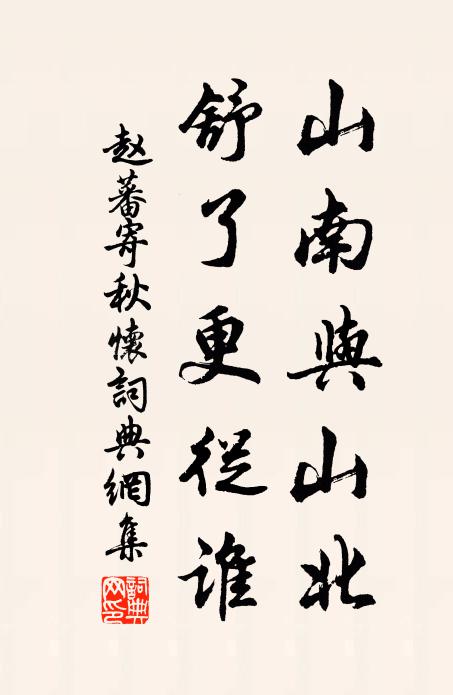 山南與山北
舒了更從誰
赵蕃寄秋懷詞典網集
詞典網印